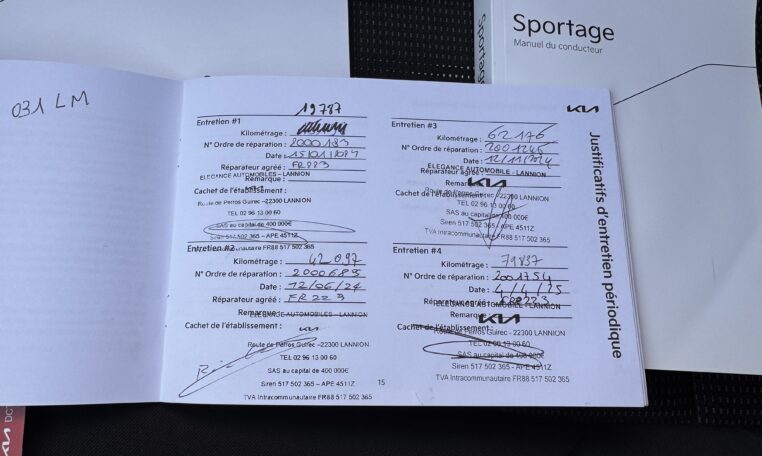 Sportage
Manuel du conducteur
sportage
031 LM
KIA
Justificatifs d'entretien périodique
19787
Entretien #1
Kilométrage :
N° Ordre de réparation : 2000183
Date : 15/01/
Réparateur agréé : FR223
ELEGANCE AUTOMOBILES - LANNION
Remarque :
Cachet de l'établissement :
Route de Perros Guirec - 22300 LANNION
TEL 02 96 13 00 60
SAS au capital de 400 000€
Siren 517 502 365 - APE 4511Z
TVA Intracommunautaire FR88 517 502 365
Entretien #2
Kilométrage : 42 097
N° Ordre de réparation : 2000689
Date : 12/06/24
Réparateur agréé : FR223
ELEGANCE AUTOMOBILES - LANNION
Remarque :
KIA
Cachet de l'établissement :
Route de Perros Guirec - 22300 LANNION
TEL 02 96 13 00 60
SAS au capital de 400 000€
Siren 517 502 365 - APE 4511Z
TVA Intracommunautaire FR88 517 502 365
15
Entretien #3
Kilométrage : 62176
N° Ordre de réparation : 2001245
Date : 12/11/2024
ELEGANCE AUTOMOBILE - LANNION
Réparateur agréé :
Remarque :
KIA
Cachet de l'établissement :
Route de Perros Guirec - 22300 LANNION
TEL 02 96 13 00 60
SAS au capital de 400 000€
Siren 517 502 365 - APE 4511Z
TVA Intracommunautaire FR88 517 502 365
Entretien #4
Kilométrage : 79837
N° Ordre de réparation : 2001754
Date : 4/4/25
Réparateur agréé : FR223
ELEGANCE AUTOMOBILE - LANNION
Remarque :
KIA
Cachet de l'établissement :
Route de Perros Guirec - 22300 LANNION
TEL 02 96 13 00 60
SAS au capital de 400 000€
Siren 517 502 365 - APE 4511Z
TVA Intracommunautaire FR88 517 502 365
KIA